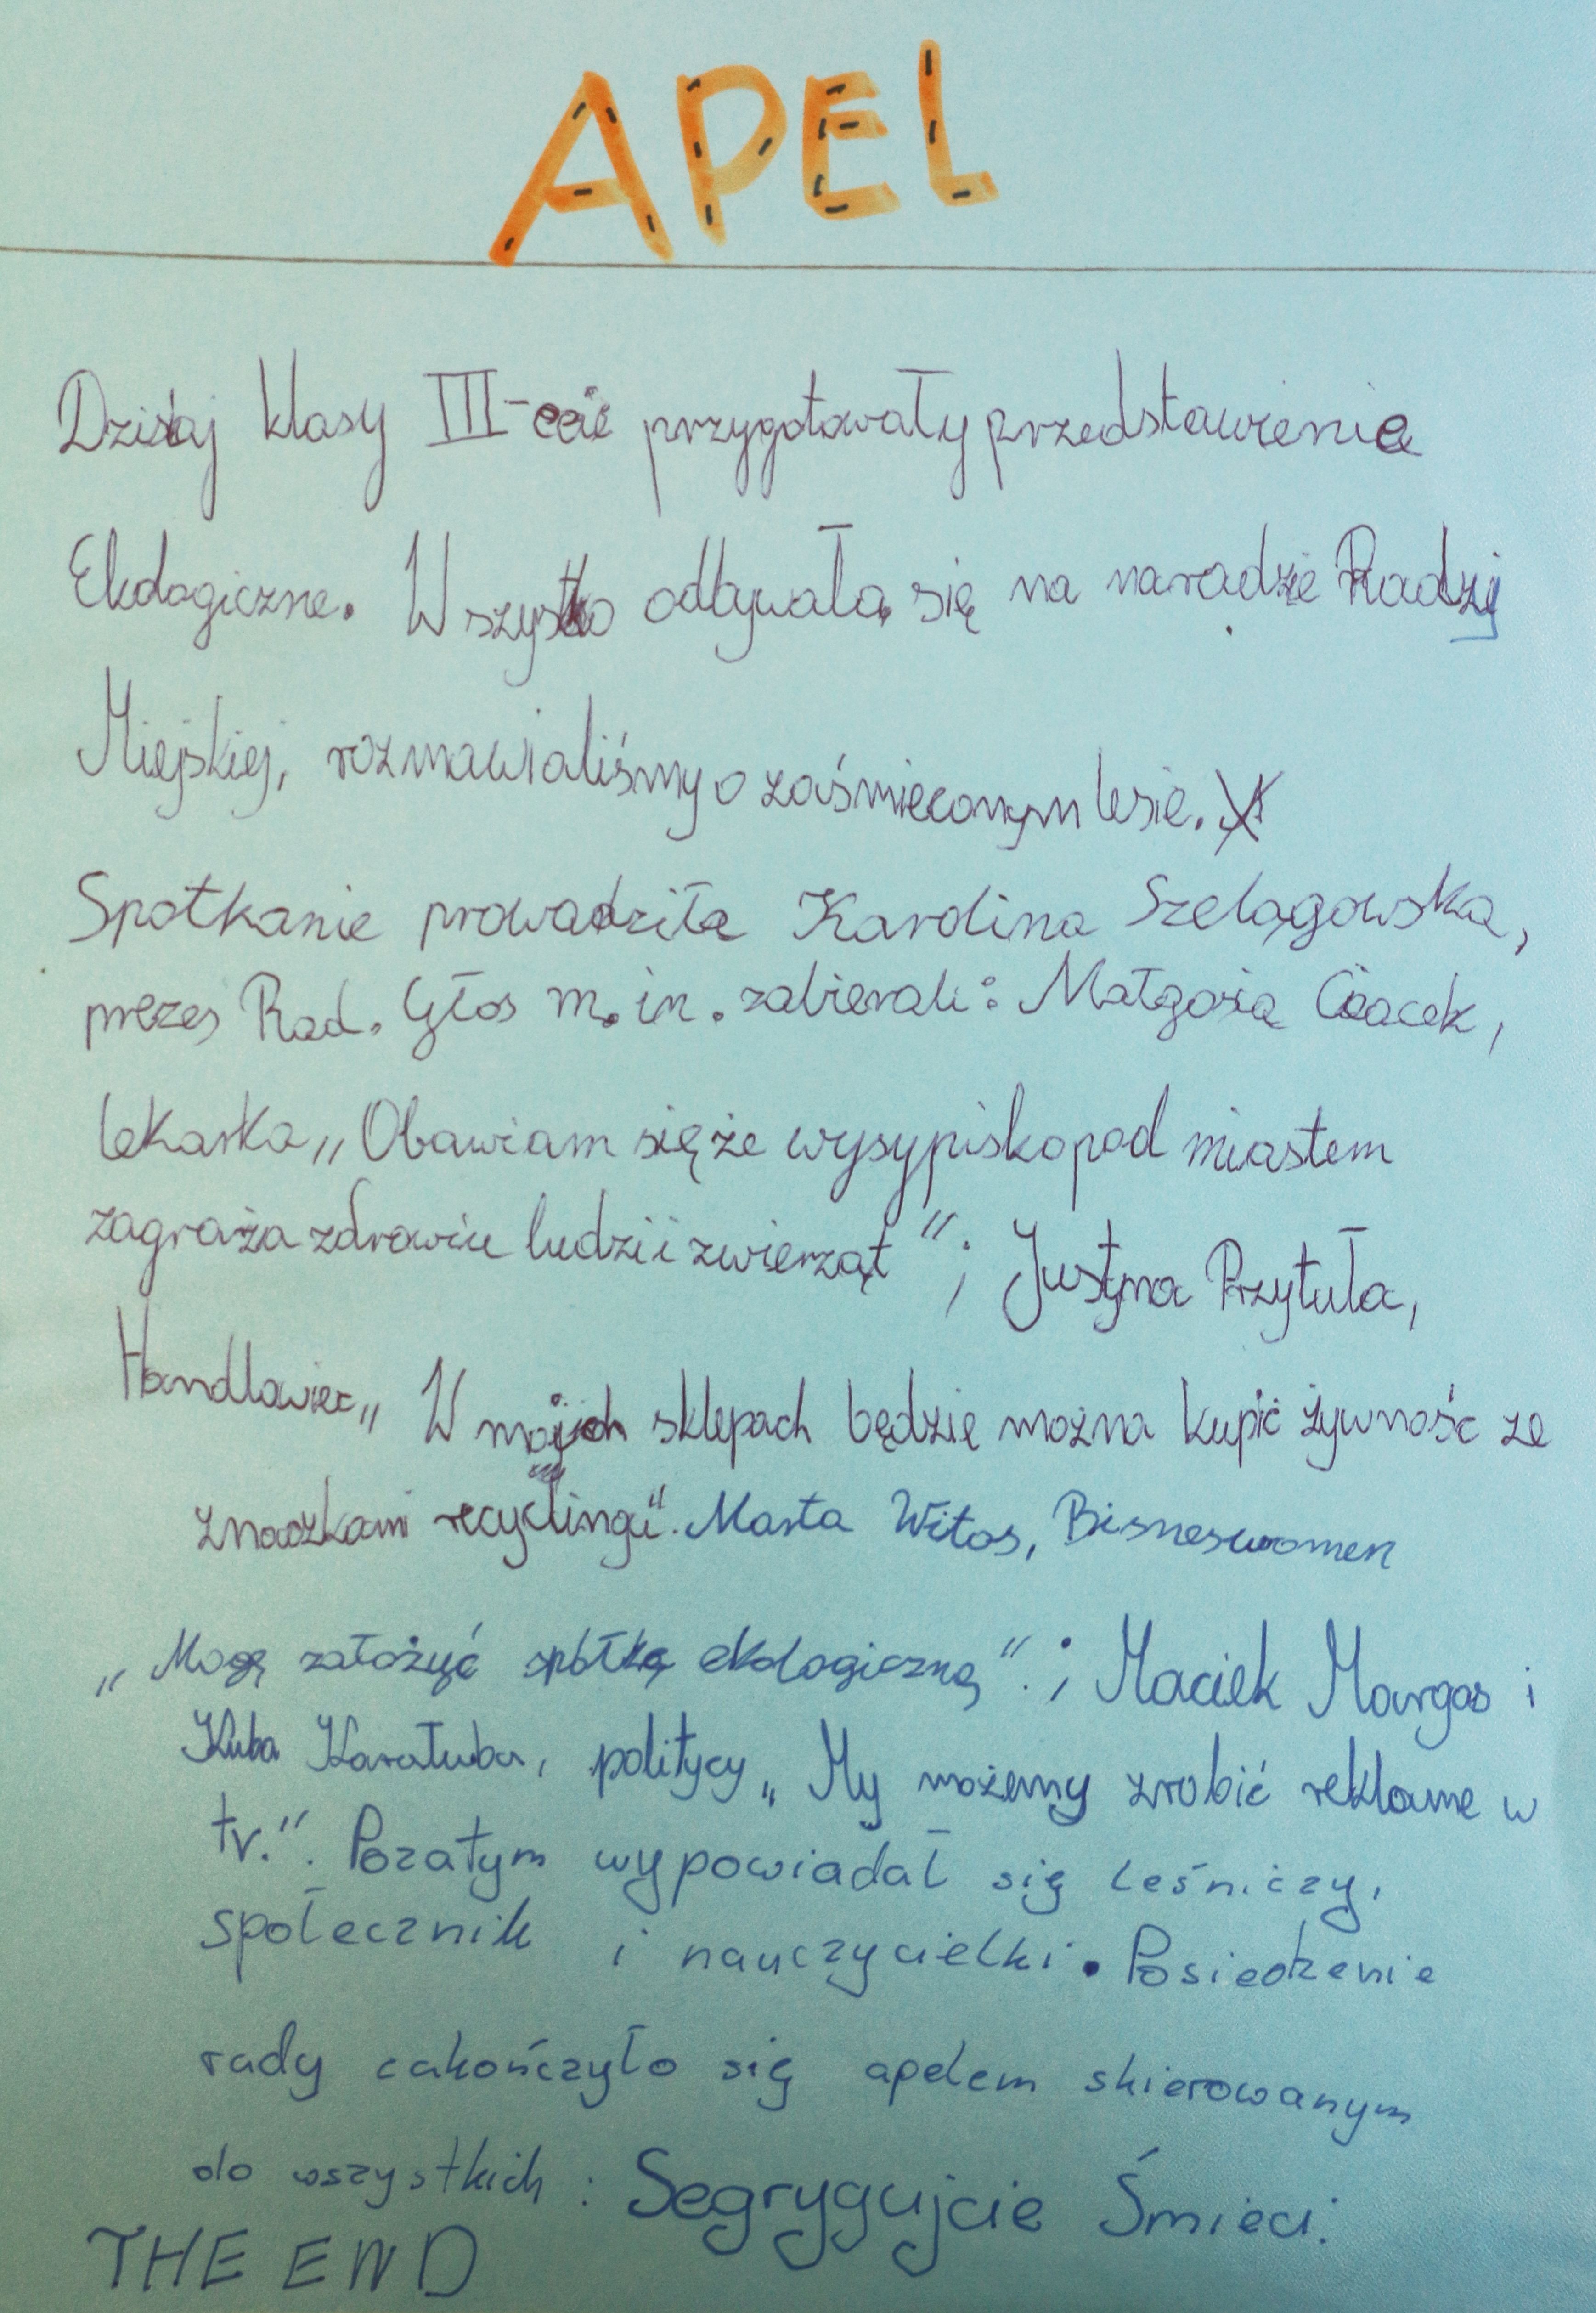 APEL
Dzisiaj klasy III-ecie przygotowały przedstawienie
Ekologiczne. Wszystko odbywała się na naradzie Radzy
Miejskiej, rozmawialiśmy o zaśmieconym lesie.
Spotkanie prowadziła Karolina Szelągowska,
prezes Rad. Głos m.in. zabierali: Małgosia
lekarka „Obawiam się że wysypisko pod miastem
zagraża zdrowiu ludzi i zwierząt"; Justyna Przytuła,
Handlowiec „W moich sklepach będzie można kupić żywność ze
znaczkami recyclingu". Marta Witos, Bisneswomen
„Mogę założyć spółkę ekologiczną".; Maciek Margos i
Kuba Karałuba, politycy „My możemy zrobić reklame w
tv.". Pozatym wypowiadał się leśniczy,
społecznik i nauczycielki. Posiedzenie
rady zakończyło się apelem skierowanym
do wszystkich: Segrygujcie Śmieci!
THE END